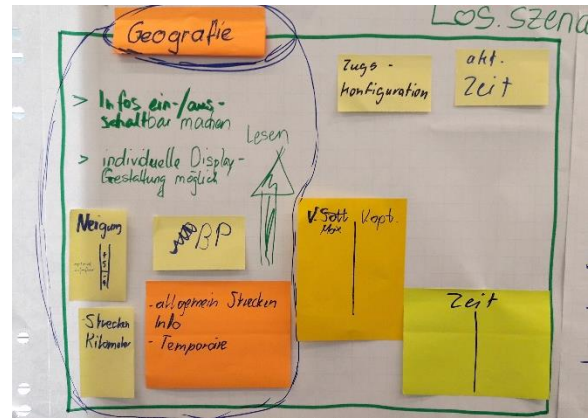 Los. Szena
Geografie
> Infos ein-/aus-
schaltbar machen
> individuelle Display-
Gestaltung möglich
Lesen
Zugs-
konfiguration
akt.
Zeit
Neigung
BP
V. Soll
Max
V.opt.
- Strecken
Kilometer
- allgemein Strecken
Info
- Temporäre
Zeit